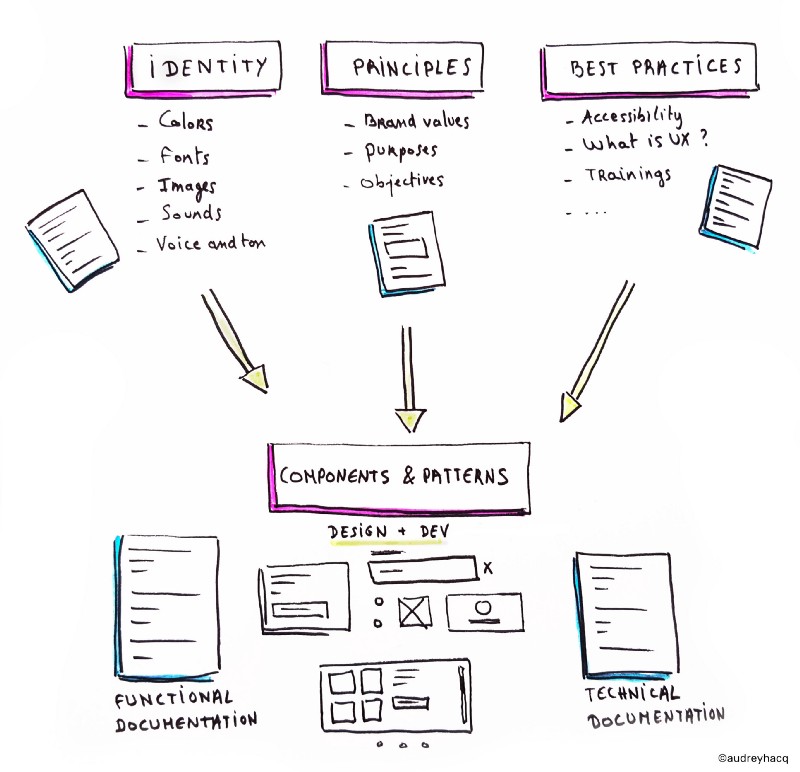 iDENTiTY
- Colors
- Fonts
- Images
- Sounds
- Voice and ton
PRiNCiPLES
- Brand values
- Purposes
- Objectives
BEST PRACTiCES
- Accessibility
- What is UX ?
- TRainings
- ...
COMPONENTS & PATTERNS
DESiGN + DEV
x
FUNCTiONAL
DOCUMENTATiON
TECHNiCAL
DOCUMENTATiON
©audreyhacq